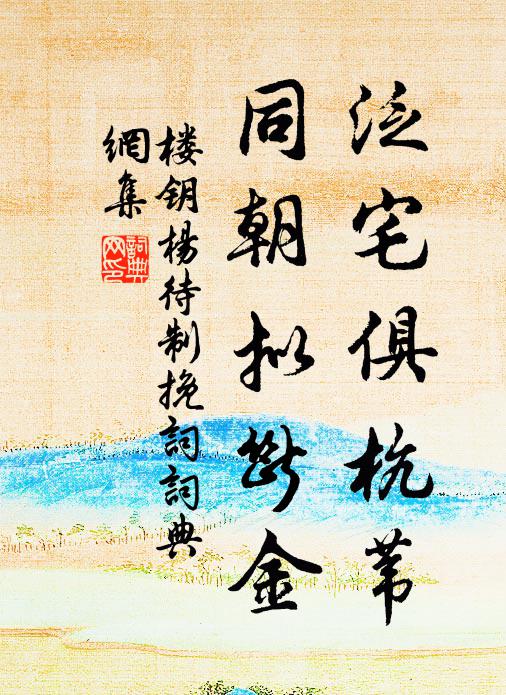 泛宅俱杭苇
同朝拟断金
楼钥杨待制挽词詞典
網集
詞典
网印